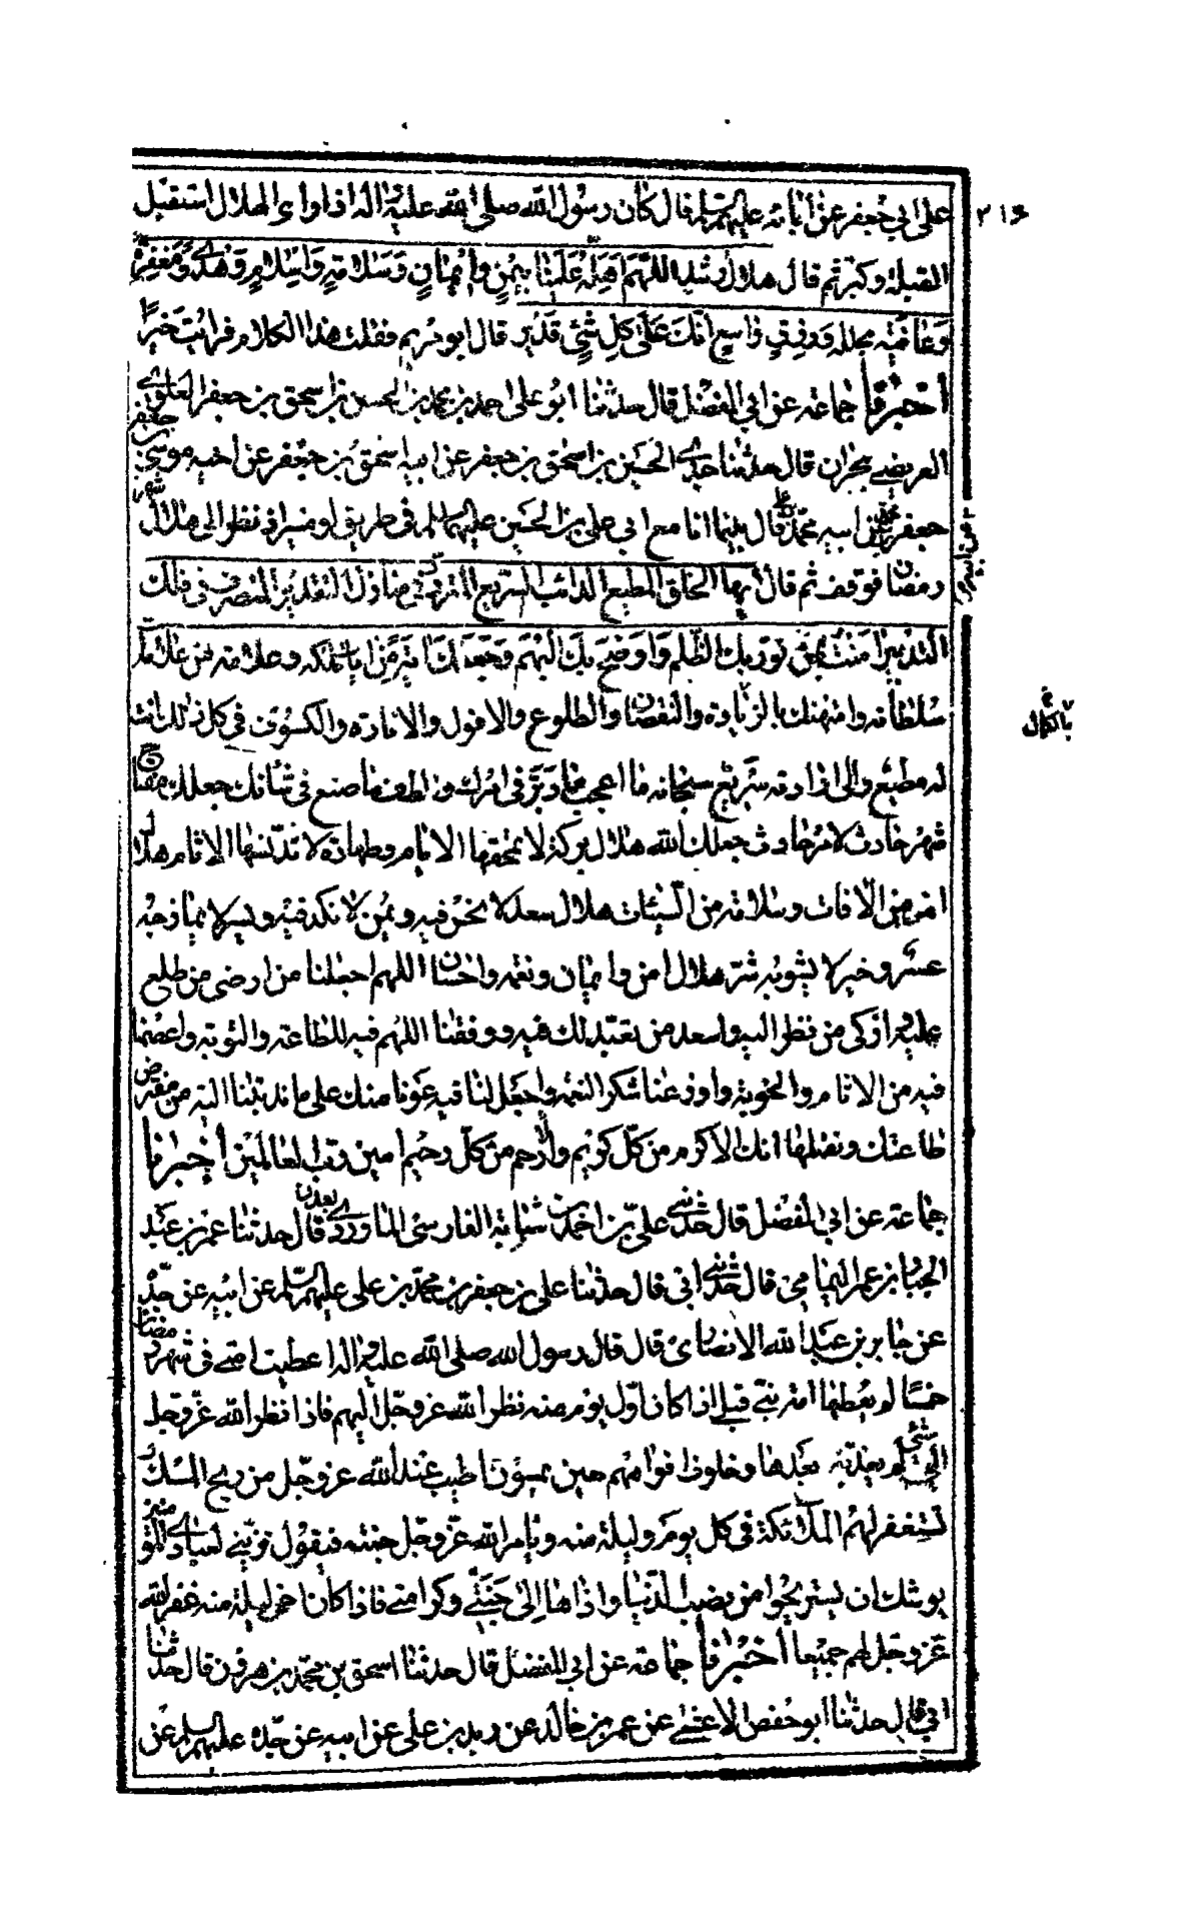 ٢١۶
على ابي جعفر عن آبائه عليهم السلم قال كان رسول الله صلى الله عليه واله اذا راى الهلال استقبل
القبلة وكبر ثم قال هلال رشد اللهم اهله علينا بيمن وايمان وسلامة واسلام وهدى ومغفرة
وعافية مجللة ورزق واسع انك على كل شئ قدير قال ابو مريم فقلت هذا الكلام فرايت خيرا
اخبرنا جماعة عن ابي المفضل قال حدثنا ابو على احمد بن محمد بن الحسين بن اسحق بن جعفر العلوى
العريضي بحران قال حدثنا جدى الحسين بن اسحق بن جعفر عن ابيه اسحق بن جعفر عن اخيه موسى بن جعفر
جعفر عن ابيه محمد قال بينما انا مع ابي على بن الحسين عليهما السلم في طريق او مسير اذ نظر الى هلال شهر
رمضان فوقف ثم قال ايها الخلق المطيع الدائب السريع المتردد في منازل التقدير المتصرف في فلك
التدبير امنت بمن نور بك الظلم واوضح بك البهم وجعلك اية من ايات ملكه وعلامة من علامات
سلطانه وامتهنك بالزيادة والنقصان والطلوع والافول والانارة والكسوف في كل ذلك انت
له مطيع والى ارادته سريع سبحانه ما اعجب ما دبر في امرك والطف ما صنع في شانك جعلك مفتاح
شهر حادث لامر حادث جعلك الله هلال بركة لا تمحقها الايام وطهارة لا تدنسها الاثام هلال
امن من الافات وسلامة من السيئات هلال سعد لا نحس فيه ويمن لا نكد فيه ويسر لا يمازجه
عسر وخير لا يشوبه شر هلال امن وايمان ونعمة واحسان اللهم اجعلنا من ارضى من طلع
عليه وازكى من نظر اليه واسعد من تعبد لك فيه ووفقنا اللهم فيه للطاعة والتوبة واعصمنا
فيه من الاثام والحوبة واوزعنا شكر النعمة واجعل لنا فيه عونا منك على ما ندبتنا اليه من مفترض
طاعتك ونفلها انك الاكرم من كل كريم والارحم من كل رحيم امين رب العالمين اخبرنا
جماعة عن ابي المفضل قال حدثني على بن احمد بن الفارسي قال حدثنا عمر بن عبد
الجبار بن عمر اليمامي قال حدثني ابي قال حدثنا على بن جعفر بن محمد بن على عليهم السلم عن ابيه عن جده
عن جابر بن عبد الله الانصارى قال قال رسول الله صلى الله عليه واله اعطيت امتي في شهر رمضان
خمسا لم يعطها امة نبي قبلي اذا كان اول يوم منه نظر الله عز وجل اليهم فاذا نظر الله عز وجل
الى شئ لم يعذبه بعدها وخلوف افواههم حين يمسون اطيب عند الله عز وجل من ريح المسك
تستغفر لهم الملائكة في كل يوم وليلة منه ويامر الله عز وجل جنته فيقول تزيني لعبادى المؤمنين
يوشك ان يستريحوا من نصب الدنيا واذاها الى جنتي وكرامتي فاذا كان اخر ليلة منه غفر الله
عز وجل لهم جميعا اخبرنا جماعة عن ابي المفضل قال حدثنا اسحق بن محمد بن هرون قال حدثنا
ابي قال حدثنا ابو حفص الاعشى عن عمر بن خالد عن زيد بن على عن ابيه عن جده عليهم السلم عن